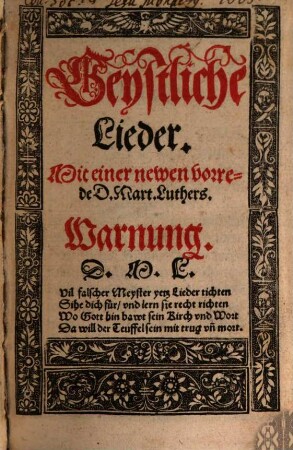 Geystliche
Lieder.
Mit einer newen vorre-
de D. Mart. Luthers.
Warnung.
D. M. L.
Vil falscher Meyster yetz Lieder tichten
Sihe dich für/ vnd lern sie recht richten
Wo Gott hin bawt sein Kirch vnd Wort
Da will der Teuffel sein mit trug vñ mort.